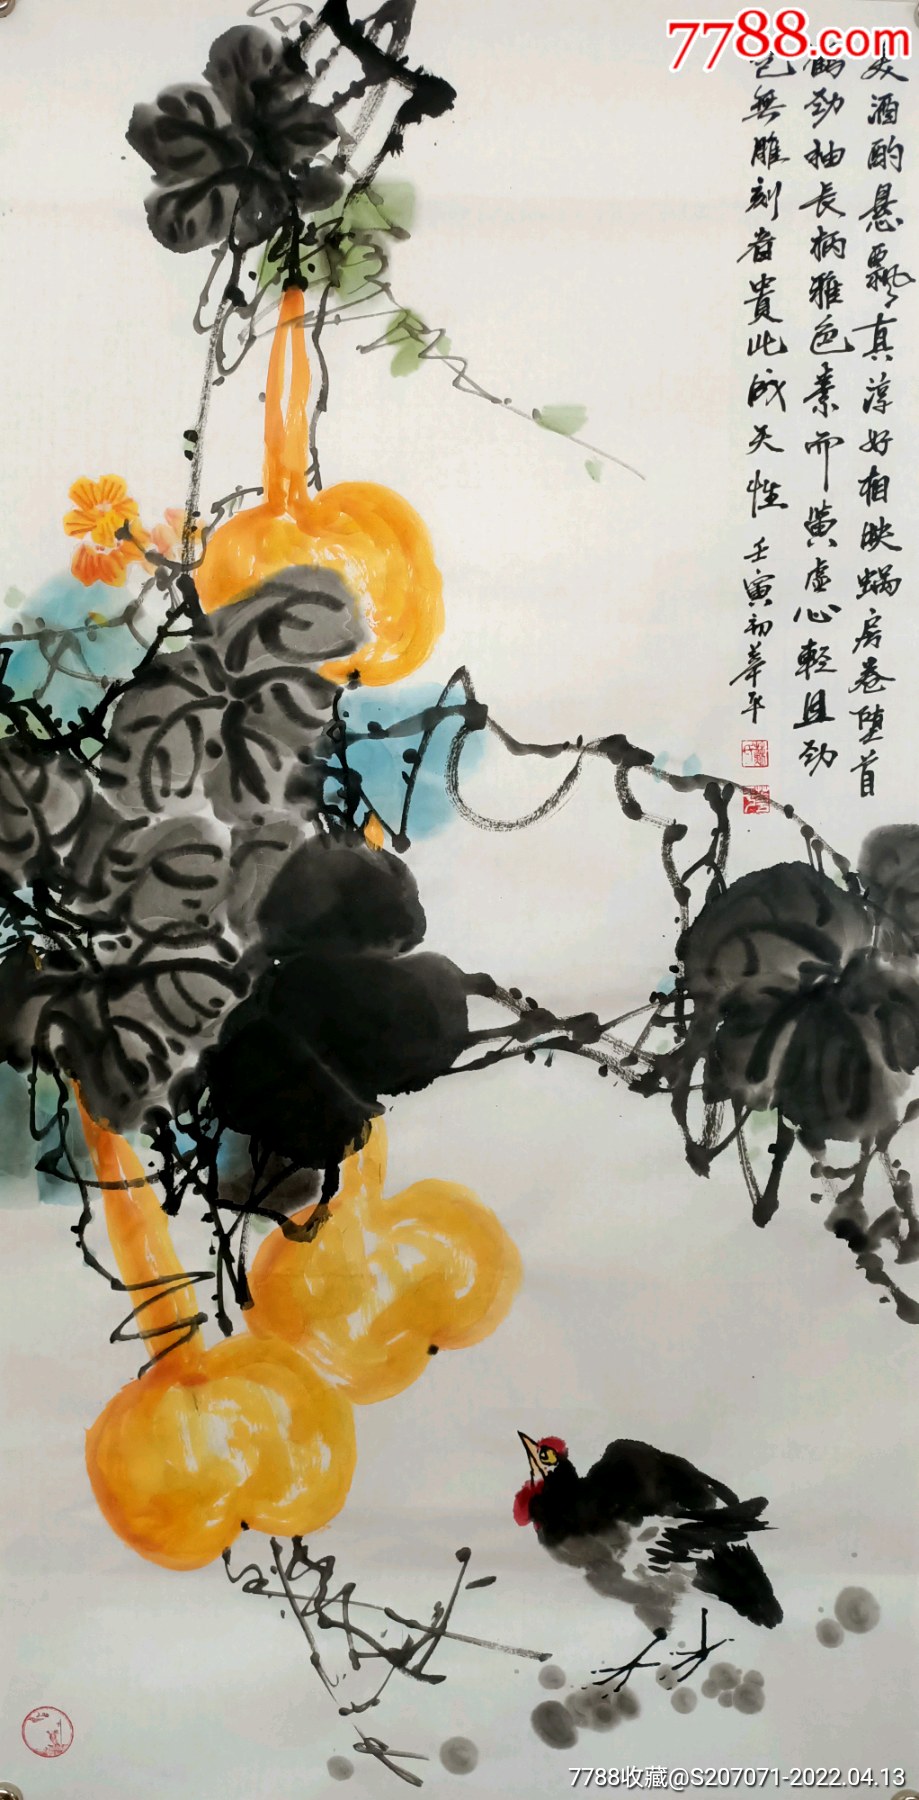 7788.com
美酒酌悬瓢真淳好相映蝸房卷堕首
鶴劲抽長柄雅色素而黄虚心輕且劲
岂無雕刻者貴此成天性 壬寅初華平
7788收藏@S207071-2022.04.13